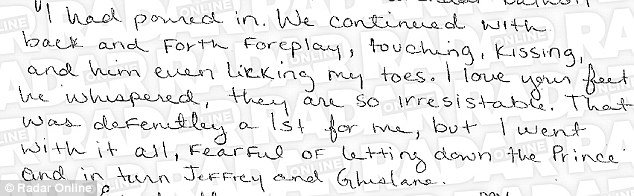 "I had poured in. We continued with
back and forth foreplay, touching, kissing,
and him even licking my toes. I love your feet
he whispered, they are so irresistable. That
was defenitley a 1st for me, but I went
with it all, fearful of letting down the Prince
and in turn Jeffrey and Ghislane.
© Radar Online